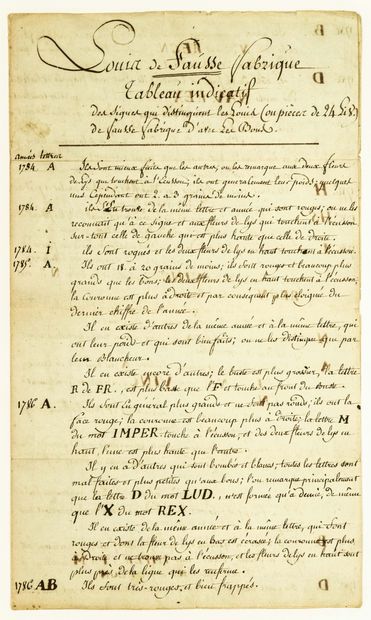 Louis de Fausse Fabrique
Tableau indicatif
des Signes qui distinguent les Louis Cou pieces de 24 Liv.
de fausse fabrique d'avec Les Bons.
années lettres
1784. A Ils sont mieux faits que les autres, on les remarque aux deux fleurs
de lys qui touchent à l'Ecusson; ils ont generalement leur poids; quelques
uns Cependant ont 2. a 3 grains de moins.
1784. A. il s'en trouve de la même lettre et année qui sont rouges; on ne les
reconnait qu'à ce signe et aux fleurs de lys qui touchent à l'ecusson
sur-tout celle de gauche qui est plus haute que celle de droite.
1784. I ils sont rognés et les deux fleurs de lys en haut touchent à l'ecusson.
1785. A. Ils ont 18. à 20 grains de moins; ils sont rouges et beaucoup plus
grands que les bons; les deux fleurs de lys en haut touchent à l'ecusson;
la couronne est plus à droite et par consequent plus eloignée du
dernier chiffre de l'année.
Il en existe d'autres de la même année et à la même lettre, qui
ont leur poids et qui sont bien faits; on ne les distingue que par
leur blancheur.
Il en existe encore d'autres; le buste est plus grossier, la lettre
R de FR., est plus basse que l'F et touche au front du Buste.
1786 A. Ils sont En general plus grands et ne sont pas ronds; ils ont la
face rouge; la couronne est beaucoup plus à droite; la lettre M
du mot IMPER touche à l'ecusson, et des deux fleurs de lys en
haut, l'une est plus haute que l'autre.
Il y en a d'autres qui sont bombés et blancs; toutes les lettres sont
mal faites et plus petites qu'aux bons; l'on remarque principalement
que la lettre D du mot LUD., n'est formée qu'a demie, de même
que l'X du mot REX.
Il en existe de la même année et à la même lettre, qui sont
rouges et dont la fleur de lys en bas est écrasée; la couronne est plus
à droite et ne touche pas à l'ecusson, et les fleurs de lys en haut sont
plus près de la ligne qui les renferme.
1786 AB Ils sont très-rouges, et bien frappés.